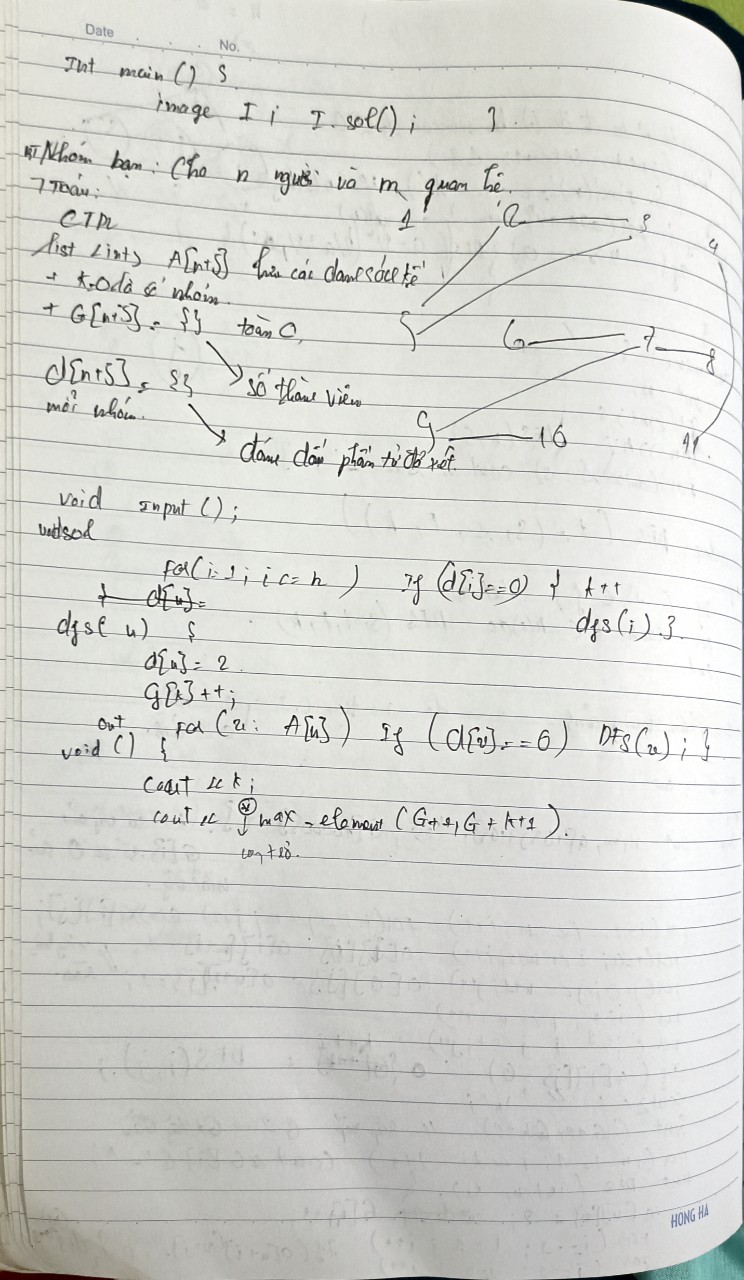 Date No.
Int main () {
image I ; I. sol() ; }
BT Nhóm bạn: Cho n người và m quan hệ.
7 Toán:
CTDL
1 2 3 4
list <int> A[n+5] lưu các danh sách kề
+ k=0 là số nhóm.
+ G[n+5] = {} toàn 0,
5 6 7 8
d[n+5] = {} số thành viên
mỗi nhóm.
9 10 11
đánh dấu phần tử đã xét.
void Input () ;
void sol
for(i=1 ; i <= n ) If (d[i]==0) { k++
d[u]=
dfs(i) }
dfs( u) {
d[u] = 2
g[k] ++ ;
out for (v : A[u]) If (d[v]==0) DFS(v) ; }
void () {
cout << k ;
cout << * max_element (G+1, G + k+1).
con trỏ.
HONG HA